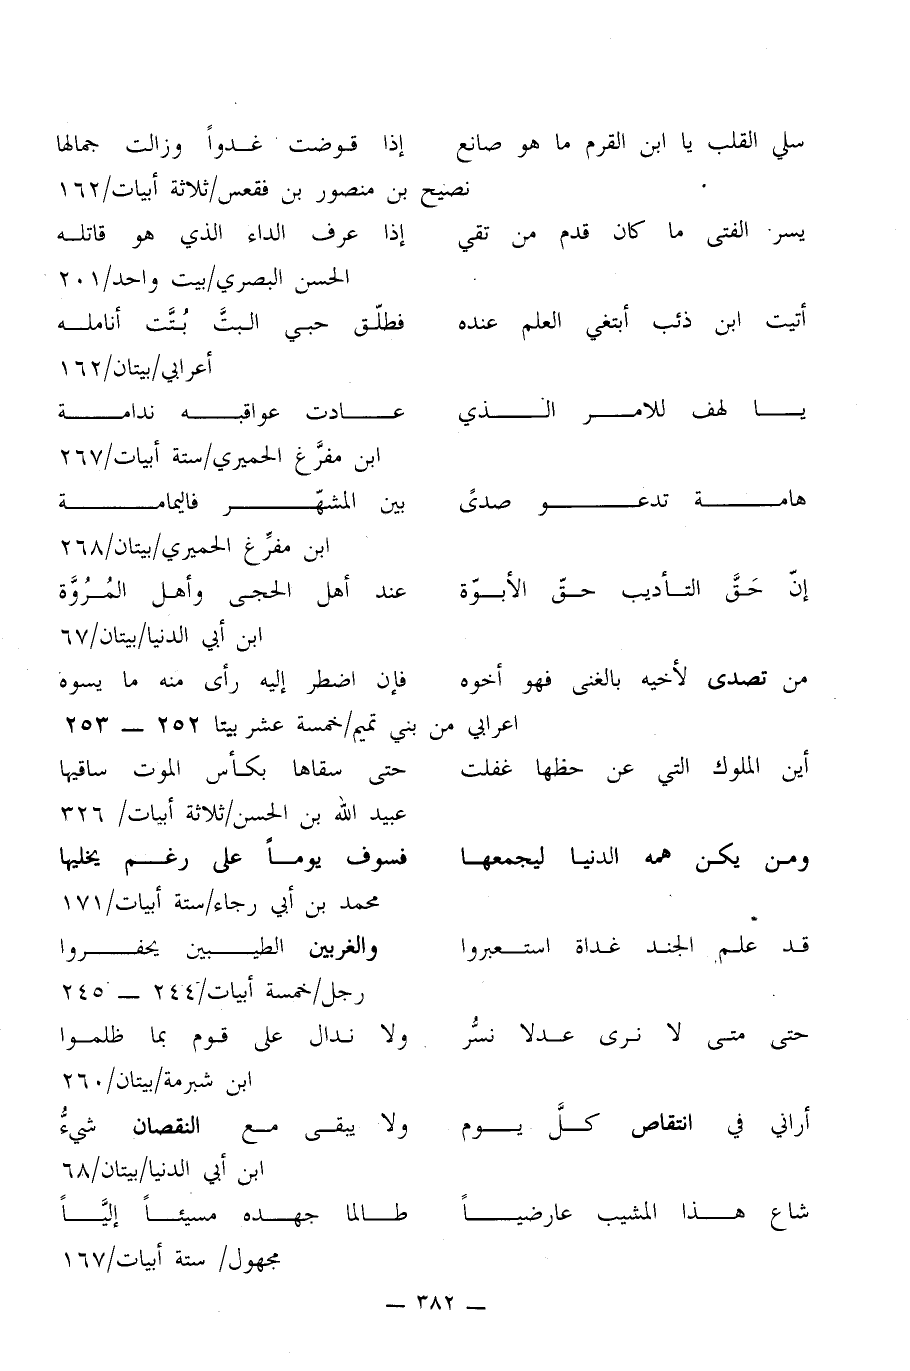 سلي القلب يا ابن القرم ما هو صانع إذا قوضت غدواً وزالت جمالها
نصيح بن منصور بن فقعس/ثلاثة أبيات/١٦٢
يسر الفتى ما كان قدم من تقي إذا عرف الداء الذي هو قاتله
الحسن البصري/بيت واحد/٢٠١
أتيت ابن ذئب أبتغي العلم عنده فطلّق حبي البتَّ بُتَّت أنامله
أعرابي/بيتان/١٦٢
يا لهف للامر الذي عادت عواقبه ندامة
ابن مفرَّغ الحميري/ستة أبيات/٢٦٧
هامة تدعو صدىً بين المشهّر فاليمامة
ابن مفرِّغ الحميري/بيتان/٢٦٨
إنّ حَقَّ التأديب حقّ الأبوّة عند أهل الحجى وأهل المُرُوَّة
ابن أبي الدنيا/بيتان/٦٧
من تصدى لأخيه بالغنى فهو أخوه فإن اضطر إليه رأى منه ما يسوه
اعرابي من بني تميم/خمسة عشر بيتا ٢٥٢ – ٢٥٣
أين الملوك التي عن حظها غفلت حتى سقاها بكأس الموت ساقيها
عبيد الله بن الحسن/ثلاثة أبيات/ ٣٢٦
ومن يكن همه الدنيا ليجمعها فسوف يوماً على رغم يخليها
محمد بن أبي رجاء/ستة أبيات/١٧١
قد علم الجند غداة استعبروا والغربين الطيبين يحفروا
رجل/خمسة أبيات/٢٤٤ – ٢٤٥
حتى متى لا نرى عدلا نسرُّ ولا ندال على قوم بما ظلموا
ابن شبرمة/بيتان/٢٦٠
أراني في انتقاص كلَّ يوم ولا يبقى مع النقصان شيءُّ
ابن أبي الدنيا/بيتان/٦٨
شاع هذا المشيب عارضياً طالما جهده مسيئاً إليَّاً
مجهول/ ستة أبيات/١٦٧
– ٣٨٢ –